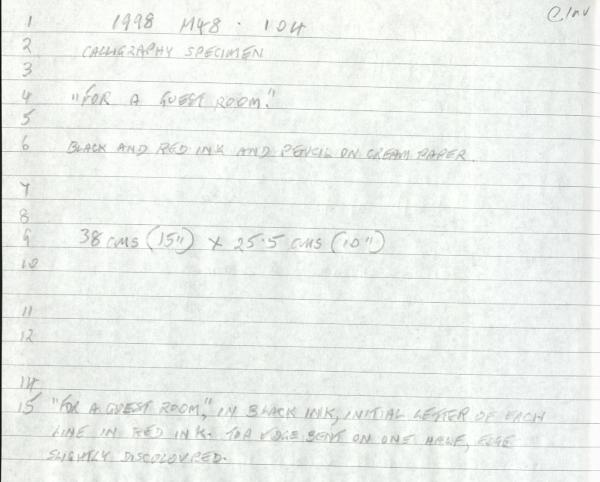 @.Inv
1 1998 M48 . 104
2 CALLIGRAPHY SPECIMEN
3
4 "FOR A GUEST ROOM."
5
6 BLACK AND RED INK AND PENCIL ON CREAM PAPER.
7
8
9 38 CMS (15") X 25.5 CMS (10")
10
11
12
14
15 "FOR A GUEST ROOM," IN BLACK INK, INITIAL LETTER OF EACH
LINE IN RED INK. TOP EDGE BENT ON ONE HALF, ELSE
SLIGHTLY DISCOLOURED.